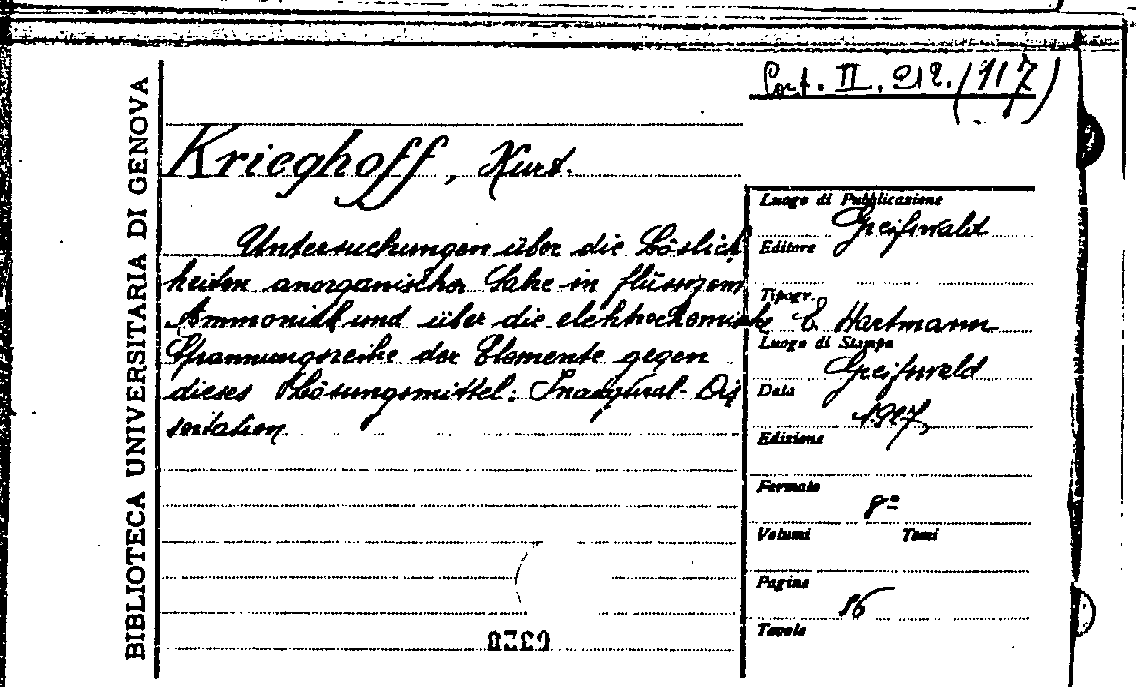 Port. II. 212. (117)
BIBLIOTECA UNIVERSITARIA DI GENOVA
Krieghoff, Kurt.
Untersuchungen über die Löslich
keiten anorganischer Salze in flüssigem
Ammoniak und über die elektrochemische
Spannungsreihe der Elemente gegen
dieses Lösungsmittel: Inaugural-Dis
sertation
Luogo di Pubblicazione
Greifswald
Editore
Tipogr.
E Hartmann
Luogo di Stampa
Greifswald
Data
1927
Edizione
Formato
8º
Volumi Tomi
Pagine
86
Tavole